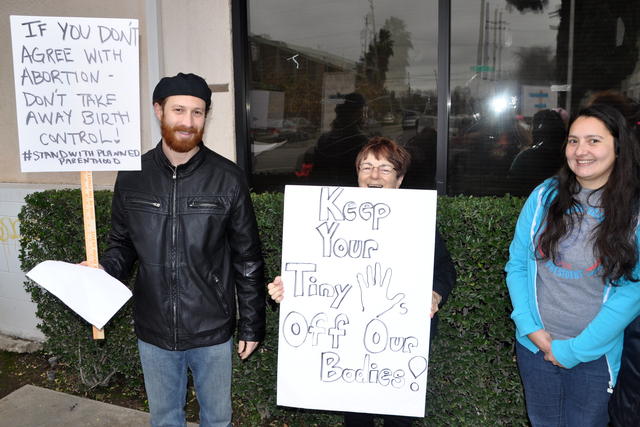 IF YOU DON'T
AGREE WITH
ABORTION -
DON'T TAKE
AWAY BIRTH
CONTROL!
#STANDWITH PLANNED
PARENTHOOD
Keep
Your
Tiny
Off Our
Bodies!